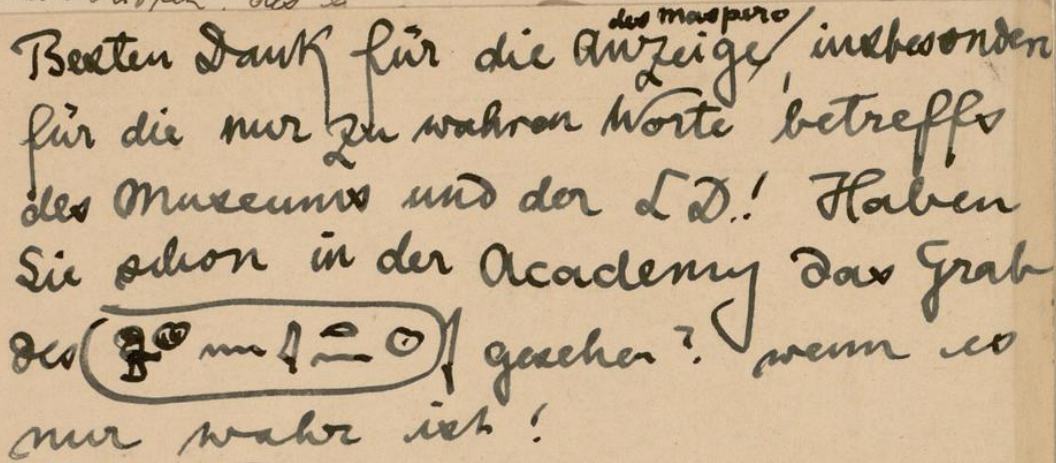 des Maspero
Besten Dank für die Anzeige, insbesonder
für die nur zu wahren Worte betreffs
des Museums und der LD! Haben
Sie schon in der Academy das Grab
des 𓍹𓅜𓐍𓈖𓇋𓏏𓈖𓇳𓍺 gesehen? wenn es
nur wahr ist!